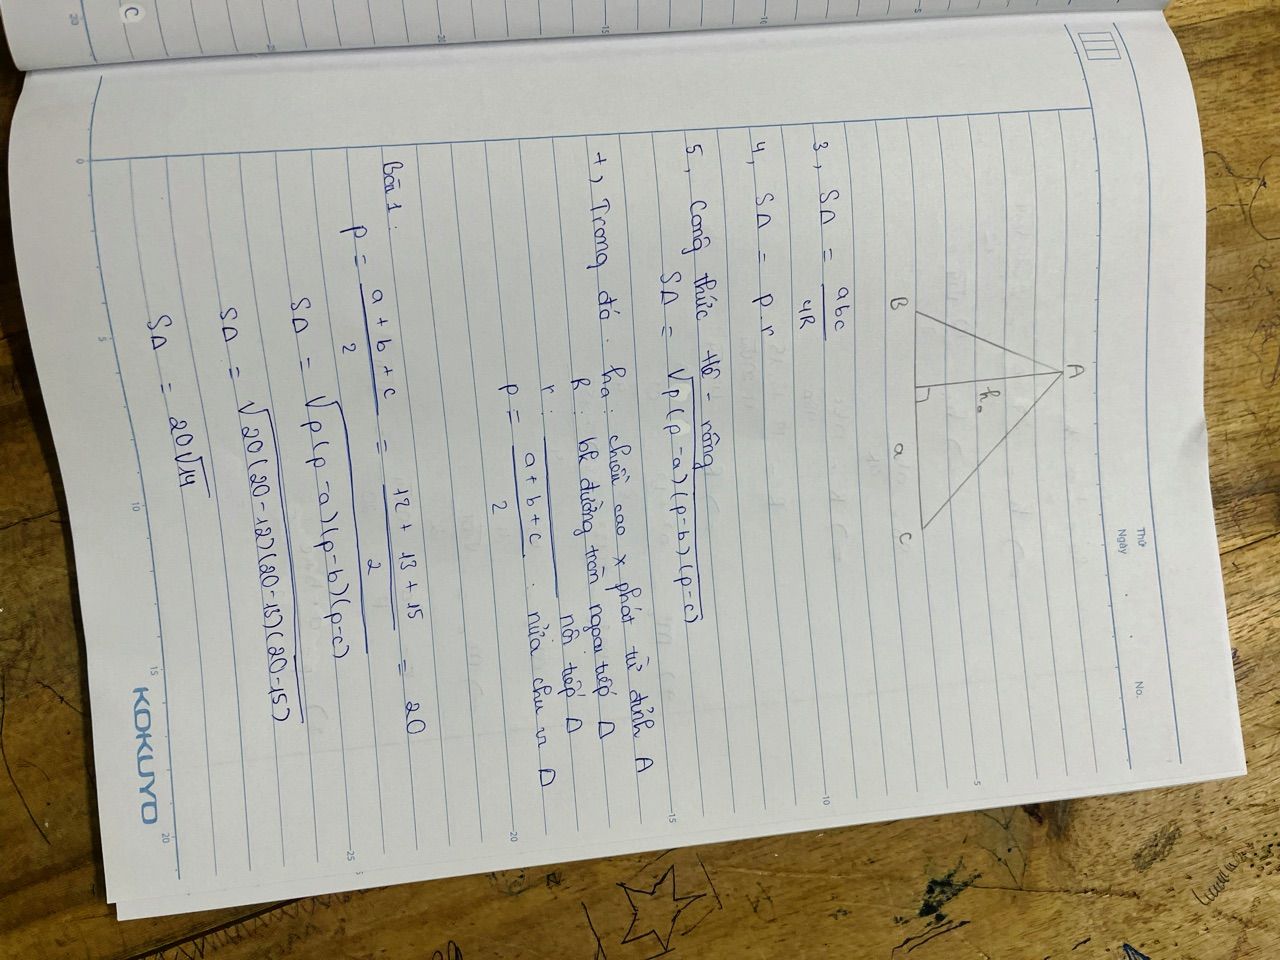 Thứ
Ngày
No.
A
hₐ
B
a
C
3, SΔ = abc
4R
4, SΔ = p.r
5, Công thức Hê - rông
SΔ = √p(p-a)(p-b)(p-c)
+, Trong đó: ha: chiều cao x phát từ đỉnh A
R: bk đường tròn ngoại tiếp Δ
r: ——— nội tiếp Δ
p = a+b+c : nửa chu vi Δ
2
Bài 1:
p = a+b+c = 12+13+15 = 20
2 2
SΔ = √p(p-a)(p-b)(p-c)
SΔ = √20(20-12)(20-13)(20-15)
SΔ = 20√14
KOKUYO
0
5
10
15
20
5
10
15
20
25
C
20
20
15
10
5